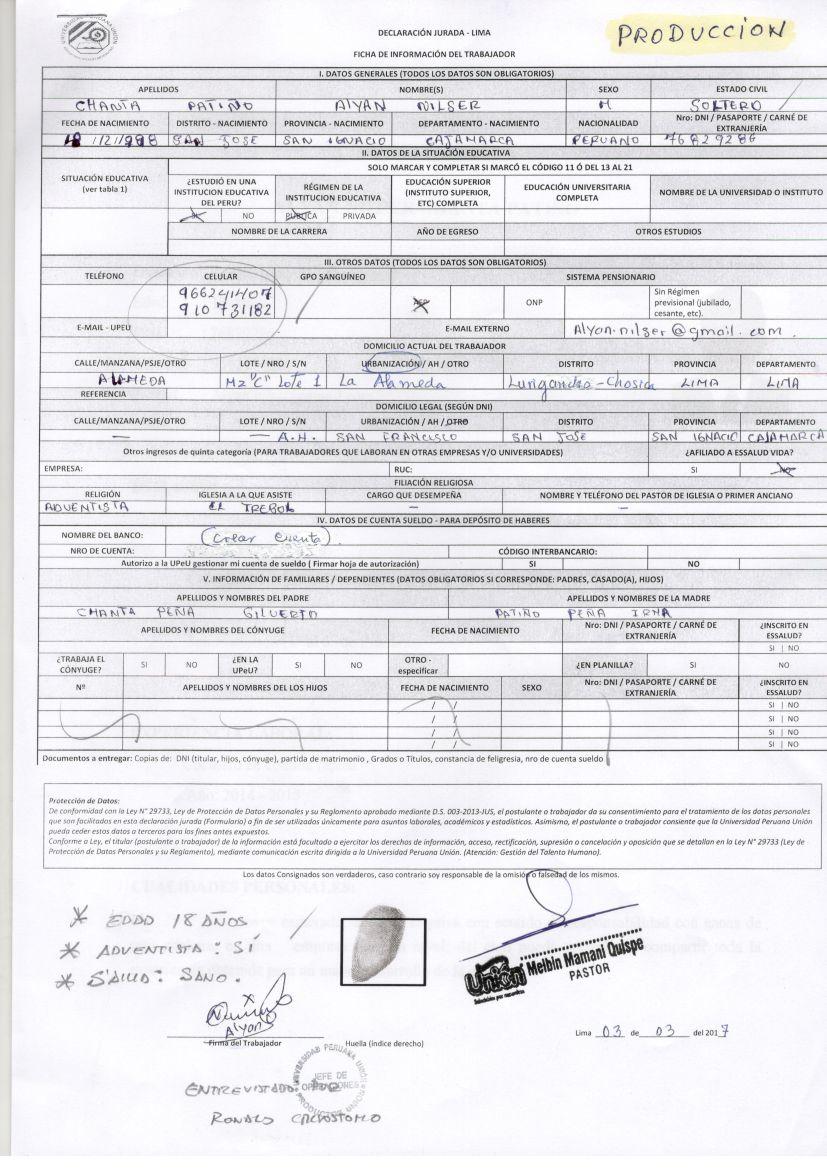 DECLARACIÓN JURADA - LIMA
PRODUCCION
FICHA DE INFORMACIÓN DEL TRABAJADOR
I. DATOS GENERALES (TODOS LOS DATOS SON OBLIGATORIOS)
APELLIDOS NOMBRE(S) SEXO ESTADO CIVIL
CHANTA PATIÑO Alyan NILSER M SOLTERO
FECHA DE NACIMIENTO DISTRITO - NACIMIENTO PROVINCIA - NACIMIENTO DEPARTAMENTO - NACIMIENTO NACIONALIDAD Nro: DNI / PASAPORTE / CARNÉ DE EXTRANJERÍA
SAN JOSE SAN IGNACIO CAJAMARCA PERUANO 76829286
II. DATOS DE LA SITUACIÓN EDUCATIVA
SOLO MARCAR Y COMPLETAR SI MARCÓ EL CÓDIGO 11 Ó DEL 13 AL 21
SITUACIÓN EDUCATIVA (ver tabla 1) ¿ESTUDIÓ EN UNA INSTITUCION EDUCATIVA DEL PERU? RÉGIMEN DE LA INSTITUCION EDUCATIVA EDUCACIÓN SUPERIOR (INSTITUTO SUPERIOR, ETC) COMPLETA EDUCACIÓN UNIVERSITARIA COMPLETA NOMBRE DE LA UNIVERSIDAD O INSTITUTO
NO PÚBLICA PRIVADA
NOMBRE DE LA CARRERA AÑO DE EGRESO OTROS ESTUDIOS
III. OTROS DATOS (TODOS LOS DATOS SON OBLIGATORIOS)
TELÉFONO CELULAR GPO SANGUÍNEO SISTEMA PENSIONARIO
966241407
910731182
AFP ONP Sin Régimen previsional (jubilado, cesante, etc).
E-MAIL - UPEU E-MAIL EXTERNO Alyan.nilser@gmail.com.
DOMICILIO ACTUAL DEL TRABAJADOR
CALLE/MANZANA/PSJE/OTRO LOTE / NRO / S/N URBANIZACIÓN / AH / OTRO DISTRITO PROVINCIA DEPARTAMENTO
ALAMEDA Mz "C" Lote 1 La Alameda Lurigancho - Chosica LIMA LIMA
REFERENCIA
DOMICILIO LEGAL (SEGÚN DNI)
CALLE/MANZANA/PSJE/OTRO LOTE / NRO / S/N URBANIZACIÓN / AH / OTRO DISTRITO PROVINCIA DEPARTAMENTO
— — A.H. SAN FRANCISCO SAN JOSE SAN IGNACIO CAJAMARCA
Otros ingresos de quinta categoría (PARA TRABAJADORES QUE LABORAN EN OTRAS EMPRESAS Y/O UNIVERSIDADES) ¿AFILIADO A ESSALUD VIDA?
EMPRESA: RUC: SI NO
FILIACIÓN RELIGIOSA
RELIGIÓN IGLESIA A LA QUE ASISTE CARGO QUE DESEMPEÑA NOMBRE Y TELÉFONO DEL PASTOR DE IGLESIA O PRIMER ANCIANO
ADVENTISTA EL TREBOL — —
IV. DATOS DE CUENTA SUELDO - PARA DEPÓSITO DE HABERES
NOMBRE DEL BANCO: (Crear Cuenta)
NRO DE CUENTA: CÓDIGO INTERBANCARIO:
Autorizo a la UPeU gestionar mi cuenta de sueldo ( Firmar hoja de autorización) SI NO
V. INFORMACIÓN DE FAMILIARES / DEPENDIENTES (DATOS OBLIGATORIOS SI CORRESPONDE: PADRES, CASADO(A), HIJOS)
APELLIDOS Y NOMBRES DEL PADRE APELLIDOS Y NOMBRES DE LA MADRE
CHANTA PEÑA GILVERTO PATIÑO PEÑA IRMA
APELLIDOS Y NOMBRES DEL CÓNYUGE FECHA DE NACIMIENTO Nro: DNI / PASAPORTE / CARNÉ DE EXTRANJERÍA ¿INSCRITO EN ESSALUD?
SI | NO
¿TRABAJA EL CÓNYUGE? SI NO ¿EN LA UPeU? SI NO OTRO - especificar ¿EN PLANILLA? SI NO
Nº APELLIDOS Y NOMBRES DEL LOS HIJOS FECHA DE NACIMIENTO SEXO Nro: DNI / PASAPORTE / CARNÉ DE EXTRANJERÍA ¿INSCRITO EN ESSALUD?
/ / SI | NO
/ / SI | NO
/ / SI | NO
/ / SI | NO
Documentos a entregar: Copias de: DNI (titular, hijos, cónyuge), partida de matrimonio , Grados o Títulos, constancia de feligresia, nro de cuenta sueldo
Protección de Datos:
De conformidad con la Ley N° 29733, Ley de Protección de Datos Personales y su Reglamento aprobado mediante D.S. 003-2013-JUS, el postulante o trabajador da su consentimiento para el tratamiento de los datos personales
que son facilitados en esta declaración jurada (Formulario) a fin de ser utilizados únicamente para asuntos laborales, académicos y estadísticos. Asimismo, el postulante o trabajador consiente que la Universidad Peruana Unión
pueda ceder estos datos a terceros para los fines antes expuestos.
Conforme a Ley, el titular (postulante o trabajador) de la información está facultado a ejercitar los derechos de información, acceso, rectificación, supresión o cancelación y oposición que se detallan en la Ley N° 29733 (Ley de
Protección de Datos Personales y su Reglamento), mediante comunicación escrita dirigida a la Universidad Peruana Unión. (Atención: Gestión del Talento Humano).
Los datos Consignados son verdaderos, caso contrario soy responsable de la omisión o falsedad de los mismos.
* EDAD 18 AÑOS
* ADVENTISTA: SÍ
* SALUD: SANO.
Unión Melbin Mamani Quispe
PASTOR
Alyan
Firma del Trabajador Huella (índice derecho)
Lima 03 de 03 del 2017
UNIVERSIDAD PERUANA UNIÓN
JEFE DE OPERACIONES
ENTREVISTADO:
RONALD